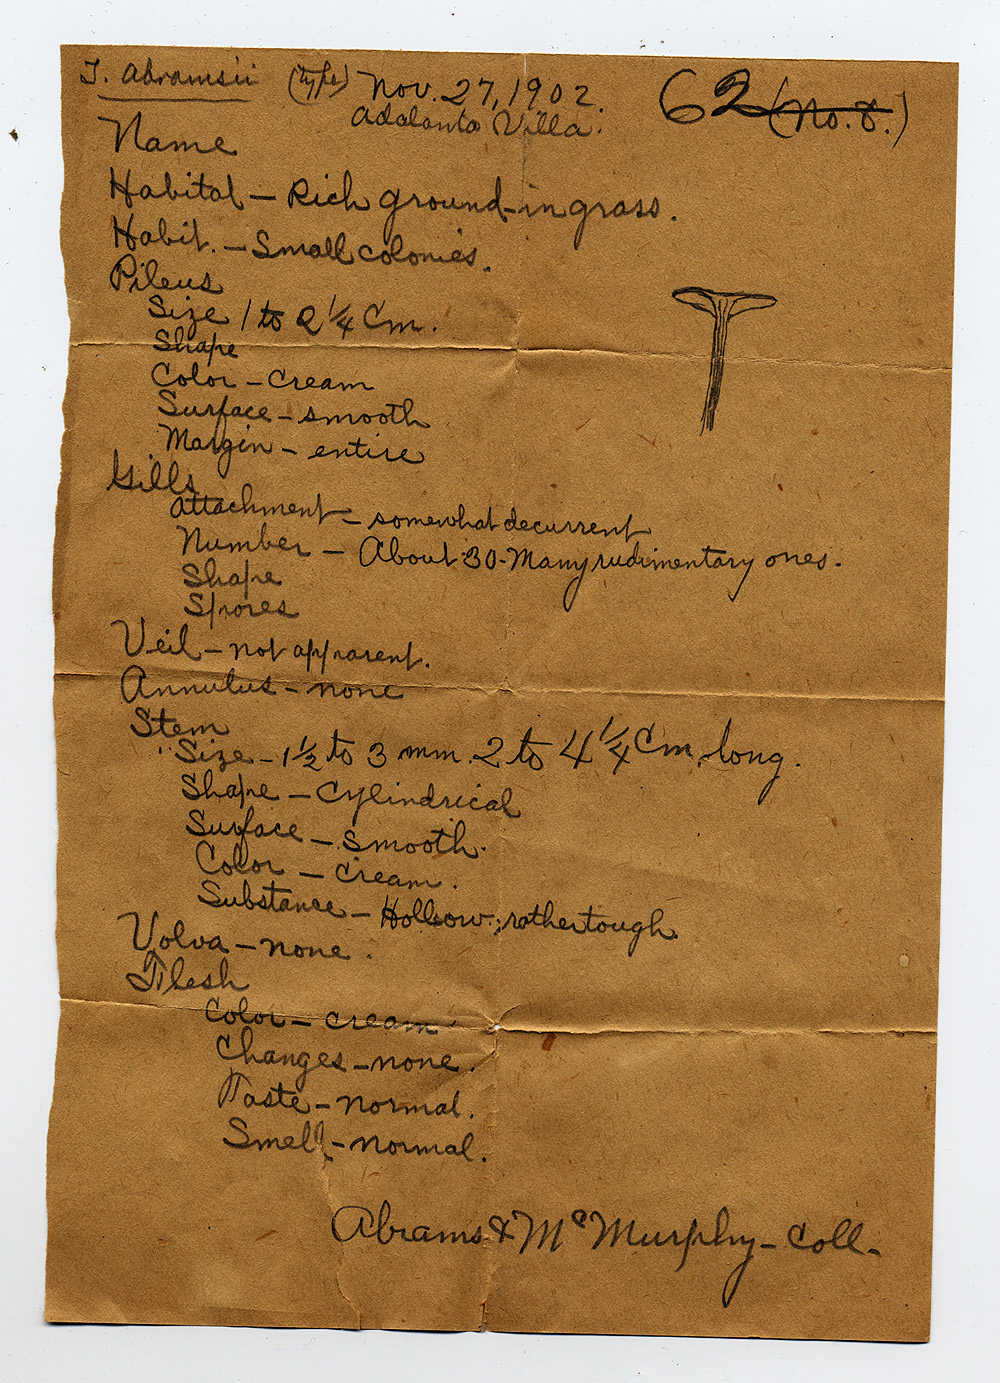 T. Abramsii (type) Nov. 27, 1902. 62 (No. 8.)
Adalanta Villa.
Name
Habitat – Rich ground – in grass.
Habit. – Small colonies.
Pileus
Size 1 to 2 1/4 Cm.
Shape
Color – cream
Surface – smooth
Margin – entire
Gills
Attachment – somewhat decurrent
Number – About 30 – Many rudimentary ones.
Shape
Spores
Veil – not apparent.
Annulus – none
Stem
Size – 1 1/2 to 3 mm. 2 to 4 1/4 Cm. long.
Shape – Cylindrical
Surface – smooth.
Color – cream.
Substance – Hollow; rather tough.
Volva – none.
Flesh
Color – cream
Changes – none.
Taste – normal.
Smell – normal.
Abrams & McMurphy – Coll.